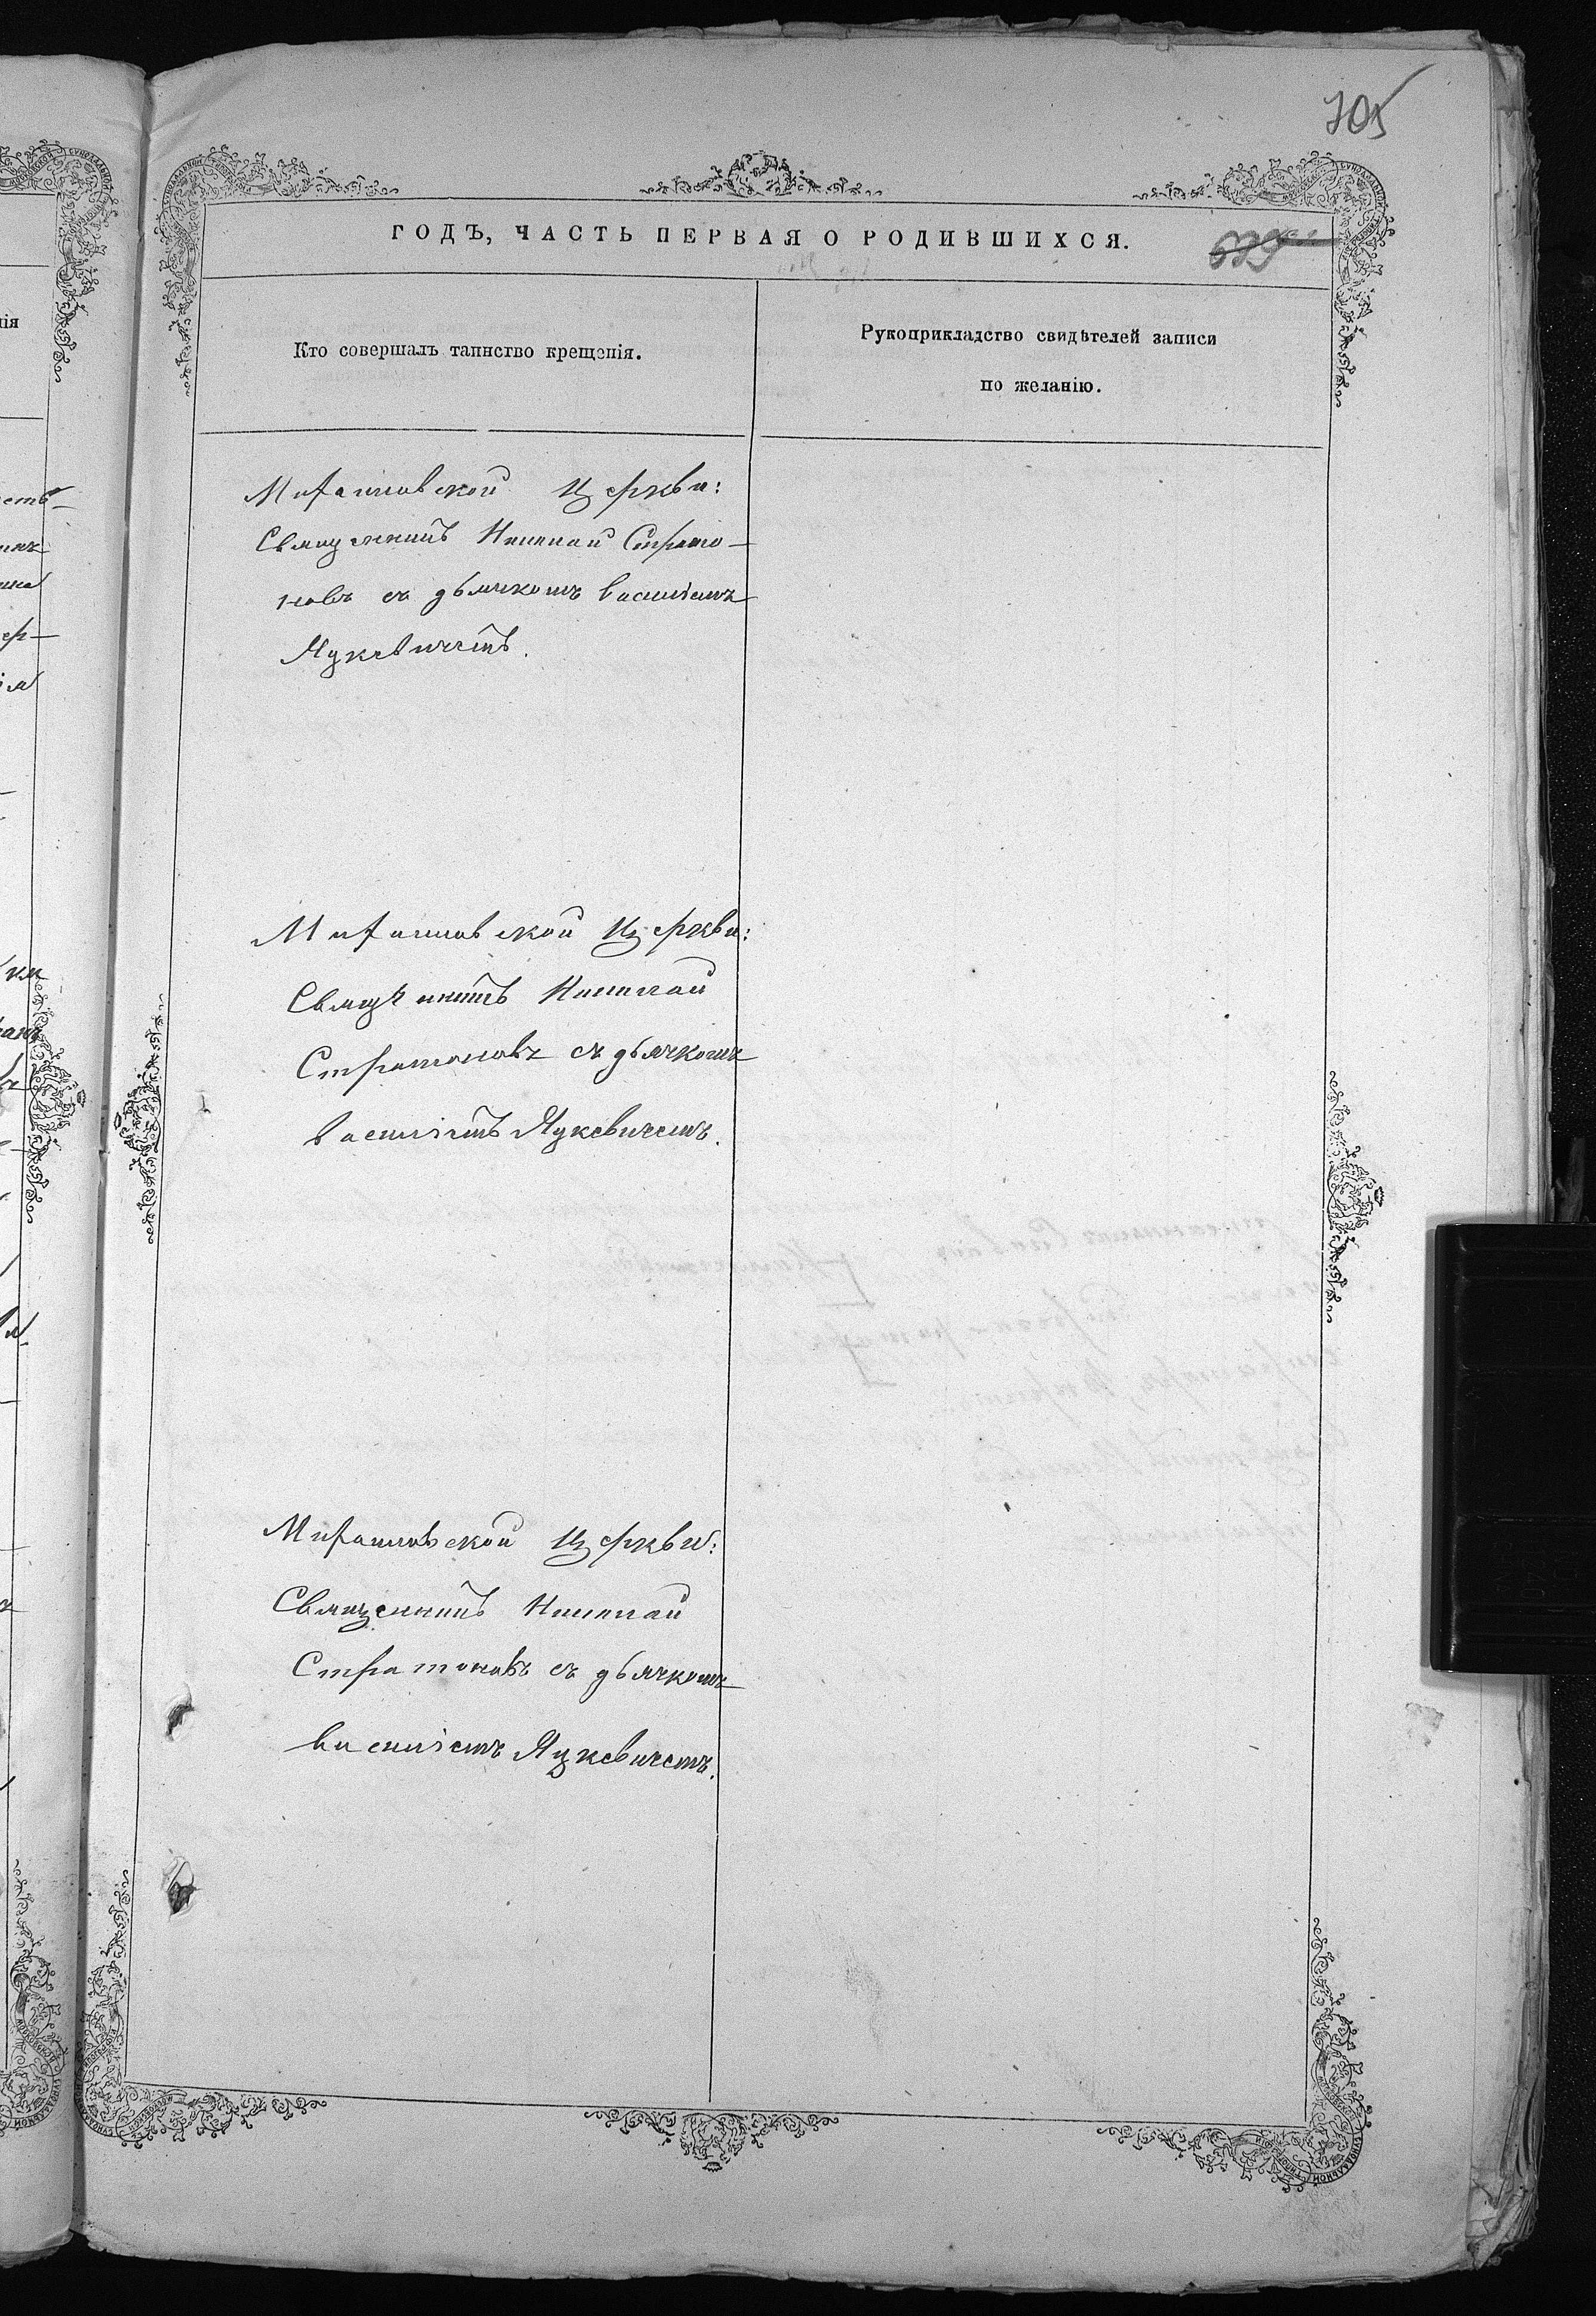 705
ГОДЪ, ЧАСТЬ ПЕРВАЯ О РОДИВШИХСЯ.
Кто совершалъ таинство крещенія.
Рукоприкладство свидѣтелей записи
по желанію.
церкви:
Священникъ Николай Страто-
новъ съ дьячкомъ Василіемъ
Яцкевичемъ.
церкви:
Священникъ Николай
Стратоновъ съ дьячкомъ
Василіемъ Яцкевичемъ.
церкви:
Священникъ Николай
Стратоновъ съ дьячкомъ
Василіемъ Яцкевичемъ.